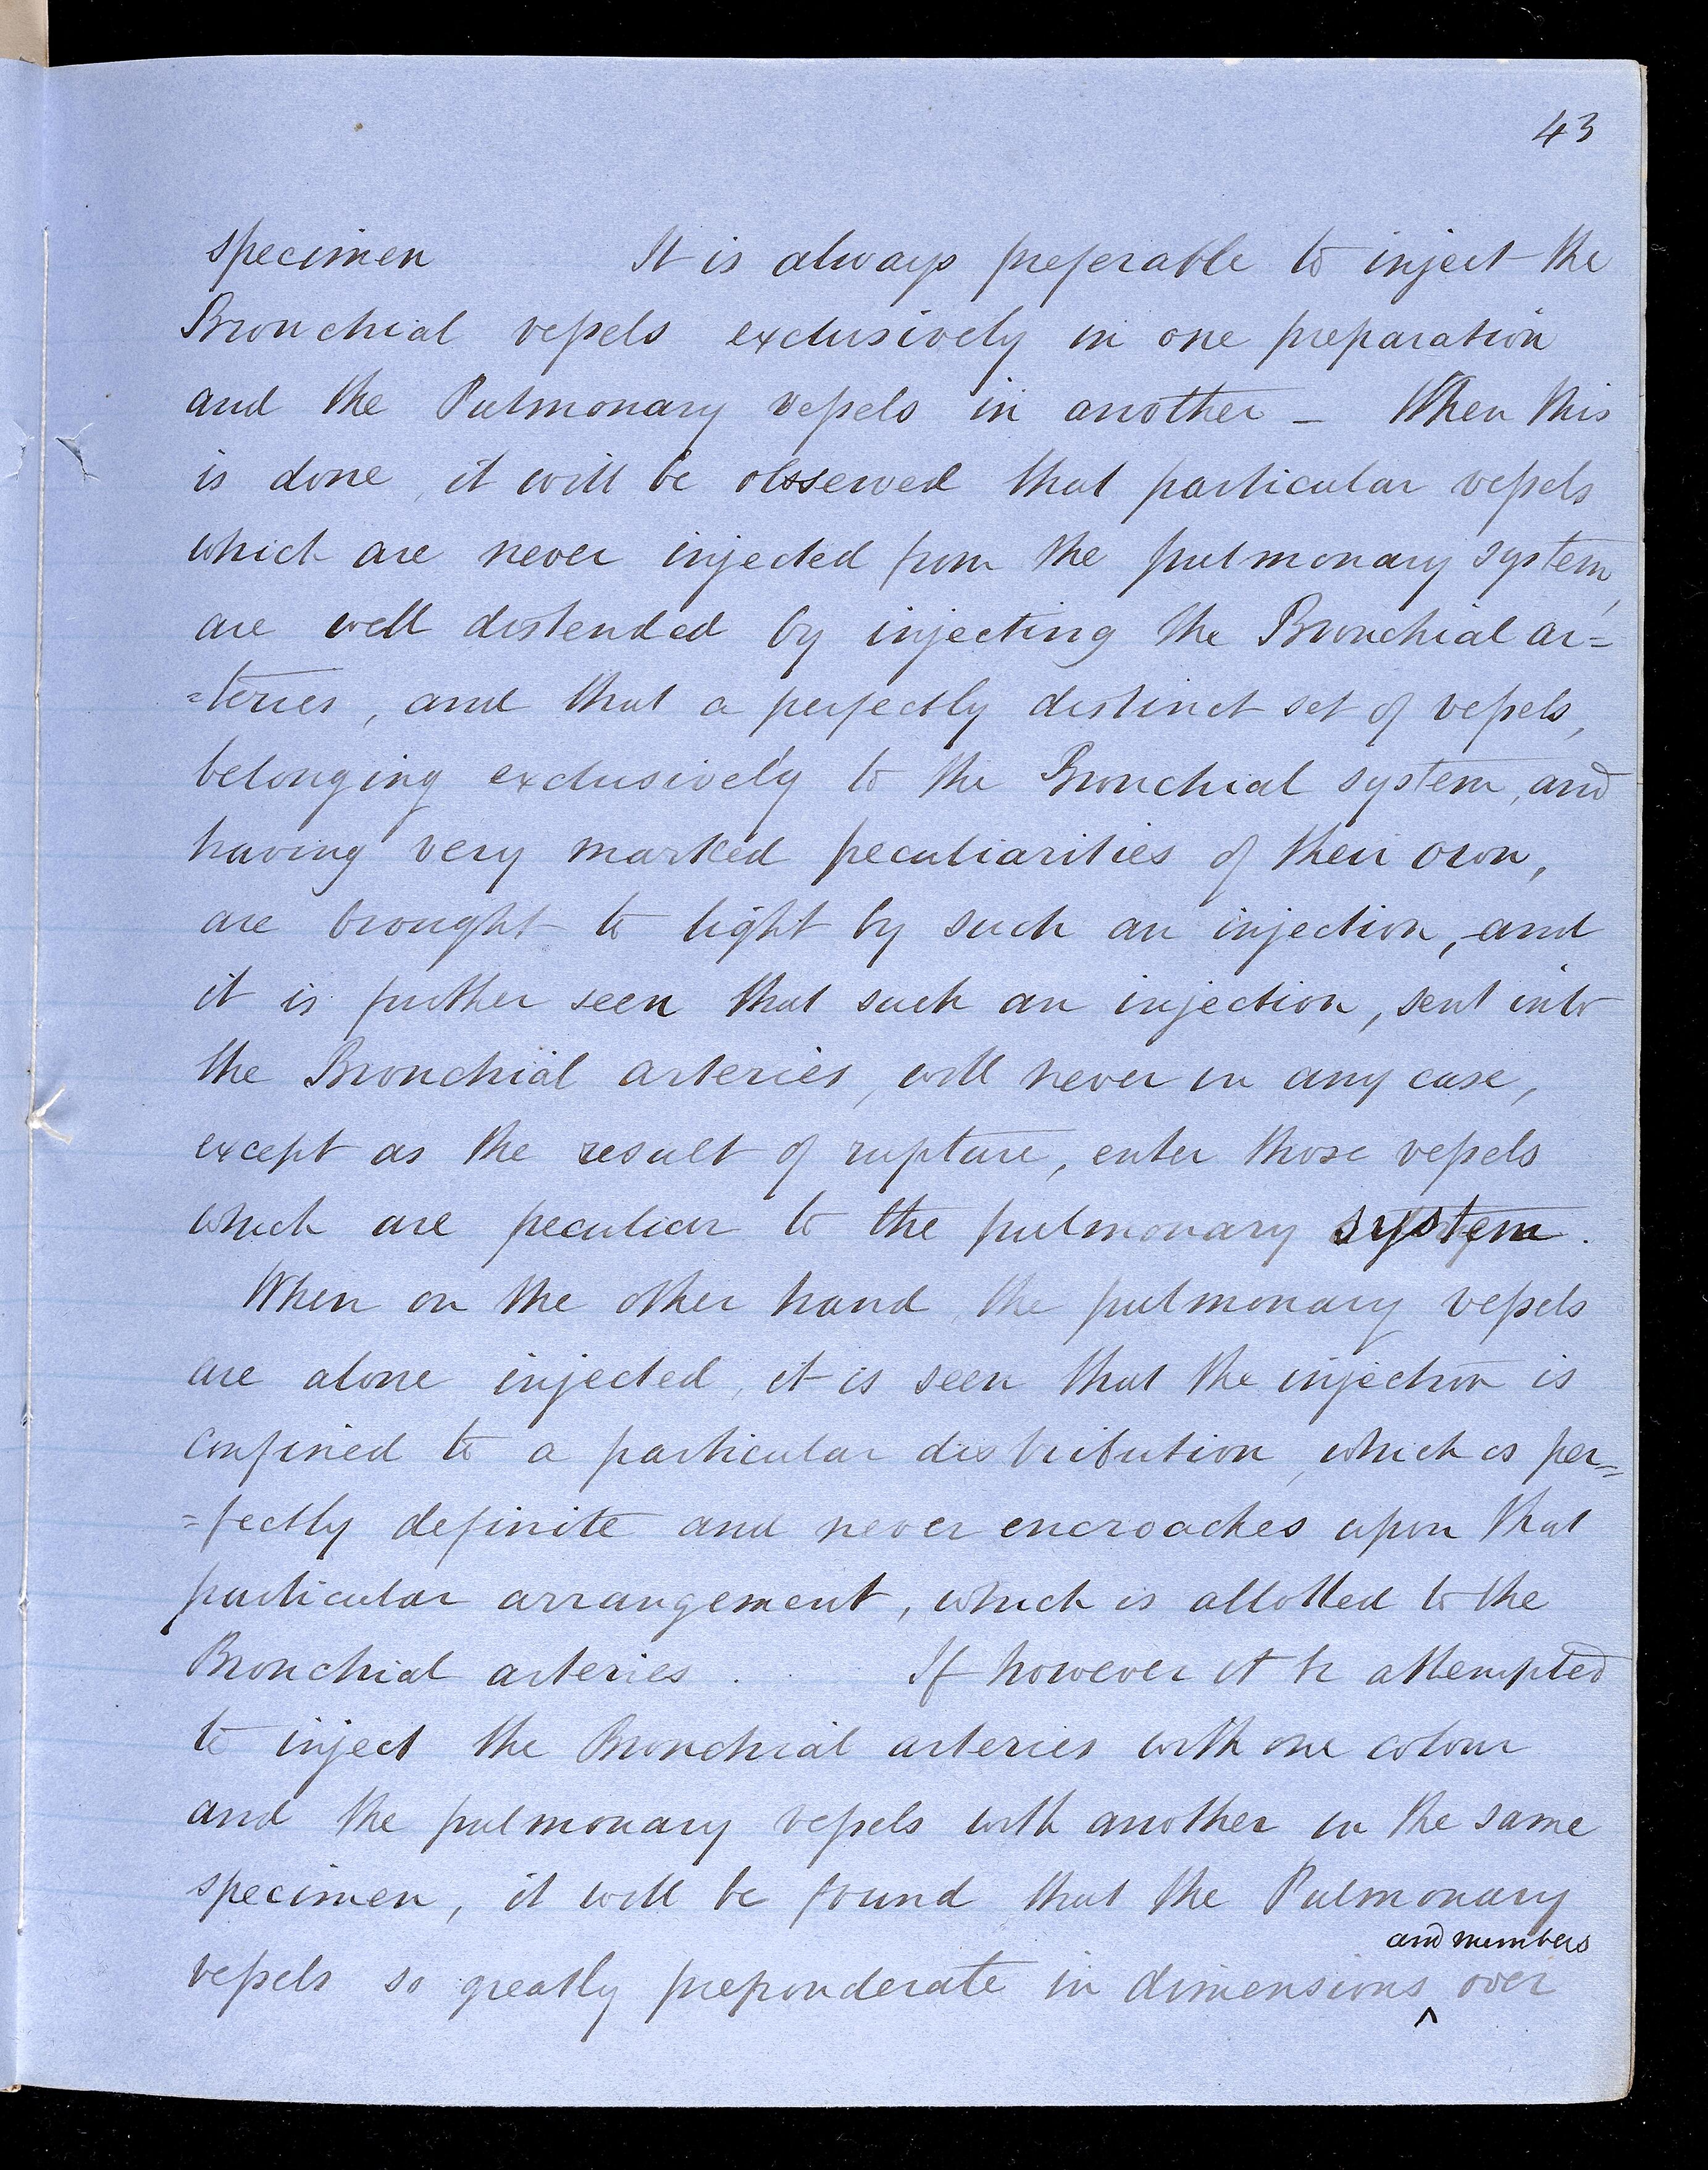 43
specimen It is always preferable to inject the
Bronchial vessels exclusively in one preparation
and the Pulmonary vessels in another - When this
is done, it will be obsserved that particular vessels
which are never injected from the pulmonary system,
are well distended by injecting the Bronchial ar=
=teries, and that a perfectly distinct set of vessels,
belonging exclusively to the Bronchial system, and
having very marked peculiarities of their own,
are brought to light by such an injection, and
it is further seen that such an injection, sent into
the Bronchial arteries, will never in any case,
except as the result of rupture, enter those vessels
which are peculiar to the pulmonary system.
When on the other hand, the pulmonary vessels
are alone injected, it is seen that the injection is
confined to a particular distribution, which is per=
=fectly definite and never encroaches upon that
particular arrangement, which is allotted to the
Bronchial arteries. If however it be attempted
to inject the Bronchial arteries with one colour
and the pulmonary vessels with another in the same
specimen, it will be found that the Pulmonary
and numbers
vessels so greatly preponderate in dimensions ^ over